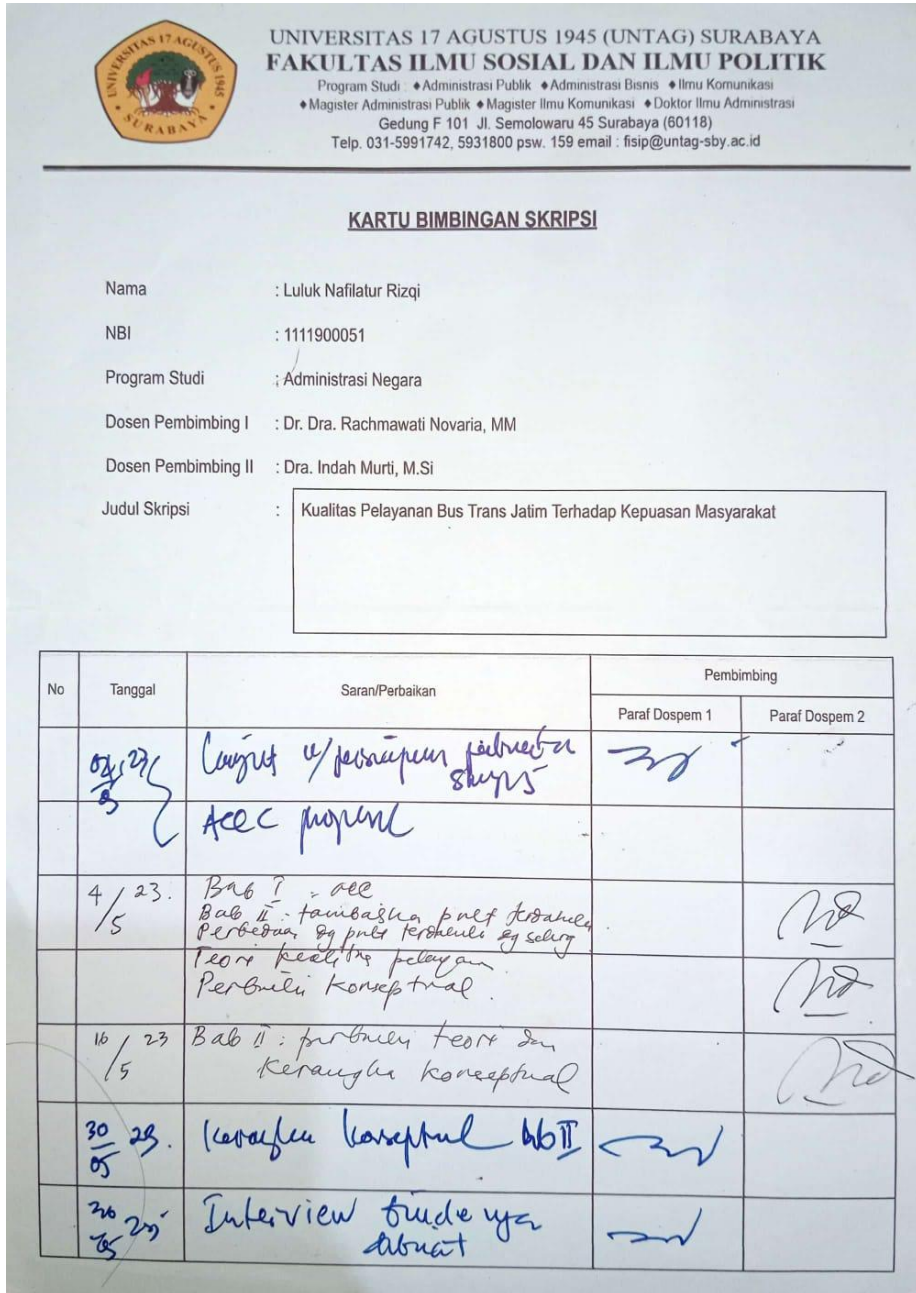 UNIVERSITAS 17 AGUSTUS 1945
SURABAYA
UNIVERSITAS 17 AGUSTUS 1945 (UNTAG) SURABAYA
FAKULTAS ILMU SOSIAL DAN ILMU POLITIK
Program Studi : ♦Administrasi Publik ♦Administrasi Bisnis ♦Ilmu Komunikasi
♦Magister Administrasi Publik ♦Magister Ilmu Komunikasi ♦Doktor Ilmu Administrasi
Gedung F 101 Jl. Semolowaru 45 Surabaya (60118)
Telp. 031-5991742, 5931800 psw. 159 email : fisip@untag-sby.ac.id
KARTU BIMBINGAN SKRIPSI
Nama : Luluk Nafilatur Rizqi
NBI : 1111900051
Program Studi : Administrasi Negara
Dosen Pembimbing I : Dr. Dra. Rachmawati Novaria, MM
Dosen Pembimbing II : Dra. Indah Murti, M.Si
Judul Skripsi : Kualitas Pelayanan Bus Trans Jatim Terhadap Kepuasan Masyarakat
No Tanggal Saran/Perbaikan Pembimbing
Paraf Dospem 1 Paraf Dospem 2
Lanjut u/
ACC
4/5 23. Bab I : acc
Bab II :
Perbedaan dg
Teori
konseptual.
16/5 23 Bab II : teori dan
Kerangka konseptual
30/05 23. Bab II
Interview
dibuat